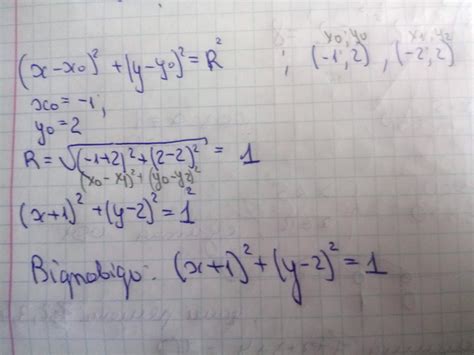 x₀; y₀   x₁; y₁
(x-x₀)² + (y-y₀)² = R² ; (-1; 2) , (-2; 2)
x₀ = -1;
y₀ = 2
R = √((-1+2)² + (2-2)²) = 1
(x₀ - x₁)² + (y₀ - y₂)²
(x+1)² + (y-2)² = 1²
Відповідь: (x+1)² + (y-2)² = 1